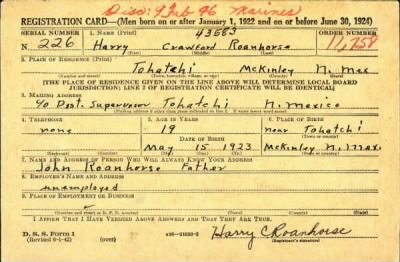 Disc: 9 Feb 46 Marines
REGISTRATION CARD—(Men born on or after January 1, 1922 and on or before June 30, 1924)
SERIAL NUMBER 1. NAME (Print) 43683 ORDER NUMBER
N 226 Harry Crawford Roanhorse 11,758
2. PLACE OF RESIDENCE (Print)
Tohatchi McKinley N. Mex
[THE PLACE OF RESIDENCE GIVEN ON THE LINE ABOVE WILL DETERMINE LOCAL BOARD
JURISDICTION; LINE 2 OF REGISTRATION CERTIFICATE WILL BE IDENTICAL]
3. MAILING ADDRESS
℅ Dist. Supervisor Tohatchi N. Mexico
[Mailing address if other than place indicated on line 2. If same insert word same]
4. TELEPHONE 5. AGE IN YEARS 6. PLACE OF BIRTH
none 19 near Tohatchi
DATE OF BIRTH
May 15 1923 McKinley N. Mex
7. NAME AND ADDRESS OF PERSON WHO WILL ALWAYS KNOW YOUR ADDRESS
John Roanhorse Father
8. EMPLOYER'S NAME AND ADDRESS
unemployed
9. PLACE OF EMPLOYMENT OR BUSINESS
I AFFIRM THAT I HAVE VERIFIED ABOVE ANSWERS AND THAT THEY ARE TRUE.
D. S. S. Form 1
(Revised 6-1-42) (over) Harry C Roanhorse
(Registrant's signature)